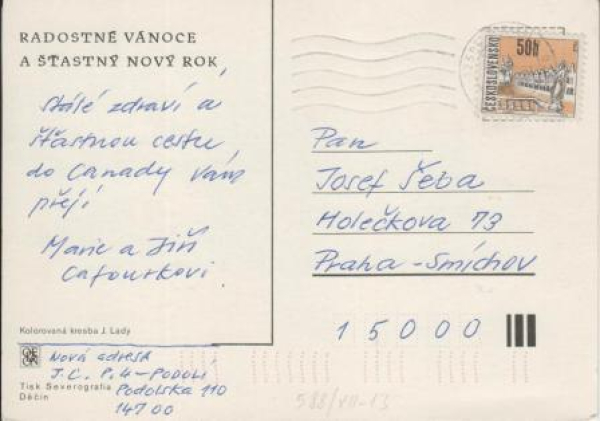 RADOSTNÉ VÁNOCE
A ŠŤASTNÝ NOVÝ ROK
Stálé zdraví a
šťastnou cestu
do Canady Vám
přejí
Marie a Jiří
Cafourkovi
Kolorovaná kresba J. Lady
Nová adresa
J.C. P.4-PODOLÍ
Podolská 110
147 00
Tisk Severografia
Děčín
50h
ČESKOSLOVENSKO
TELČ
Pan
Josef Šeba
Holečkova 73
Praha-Smíchov
15000
588/VII-13